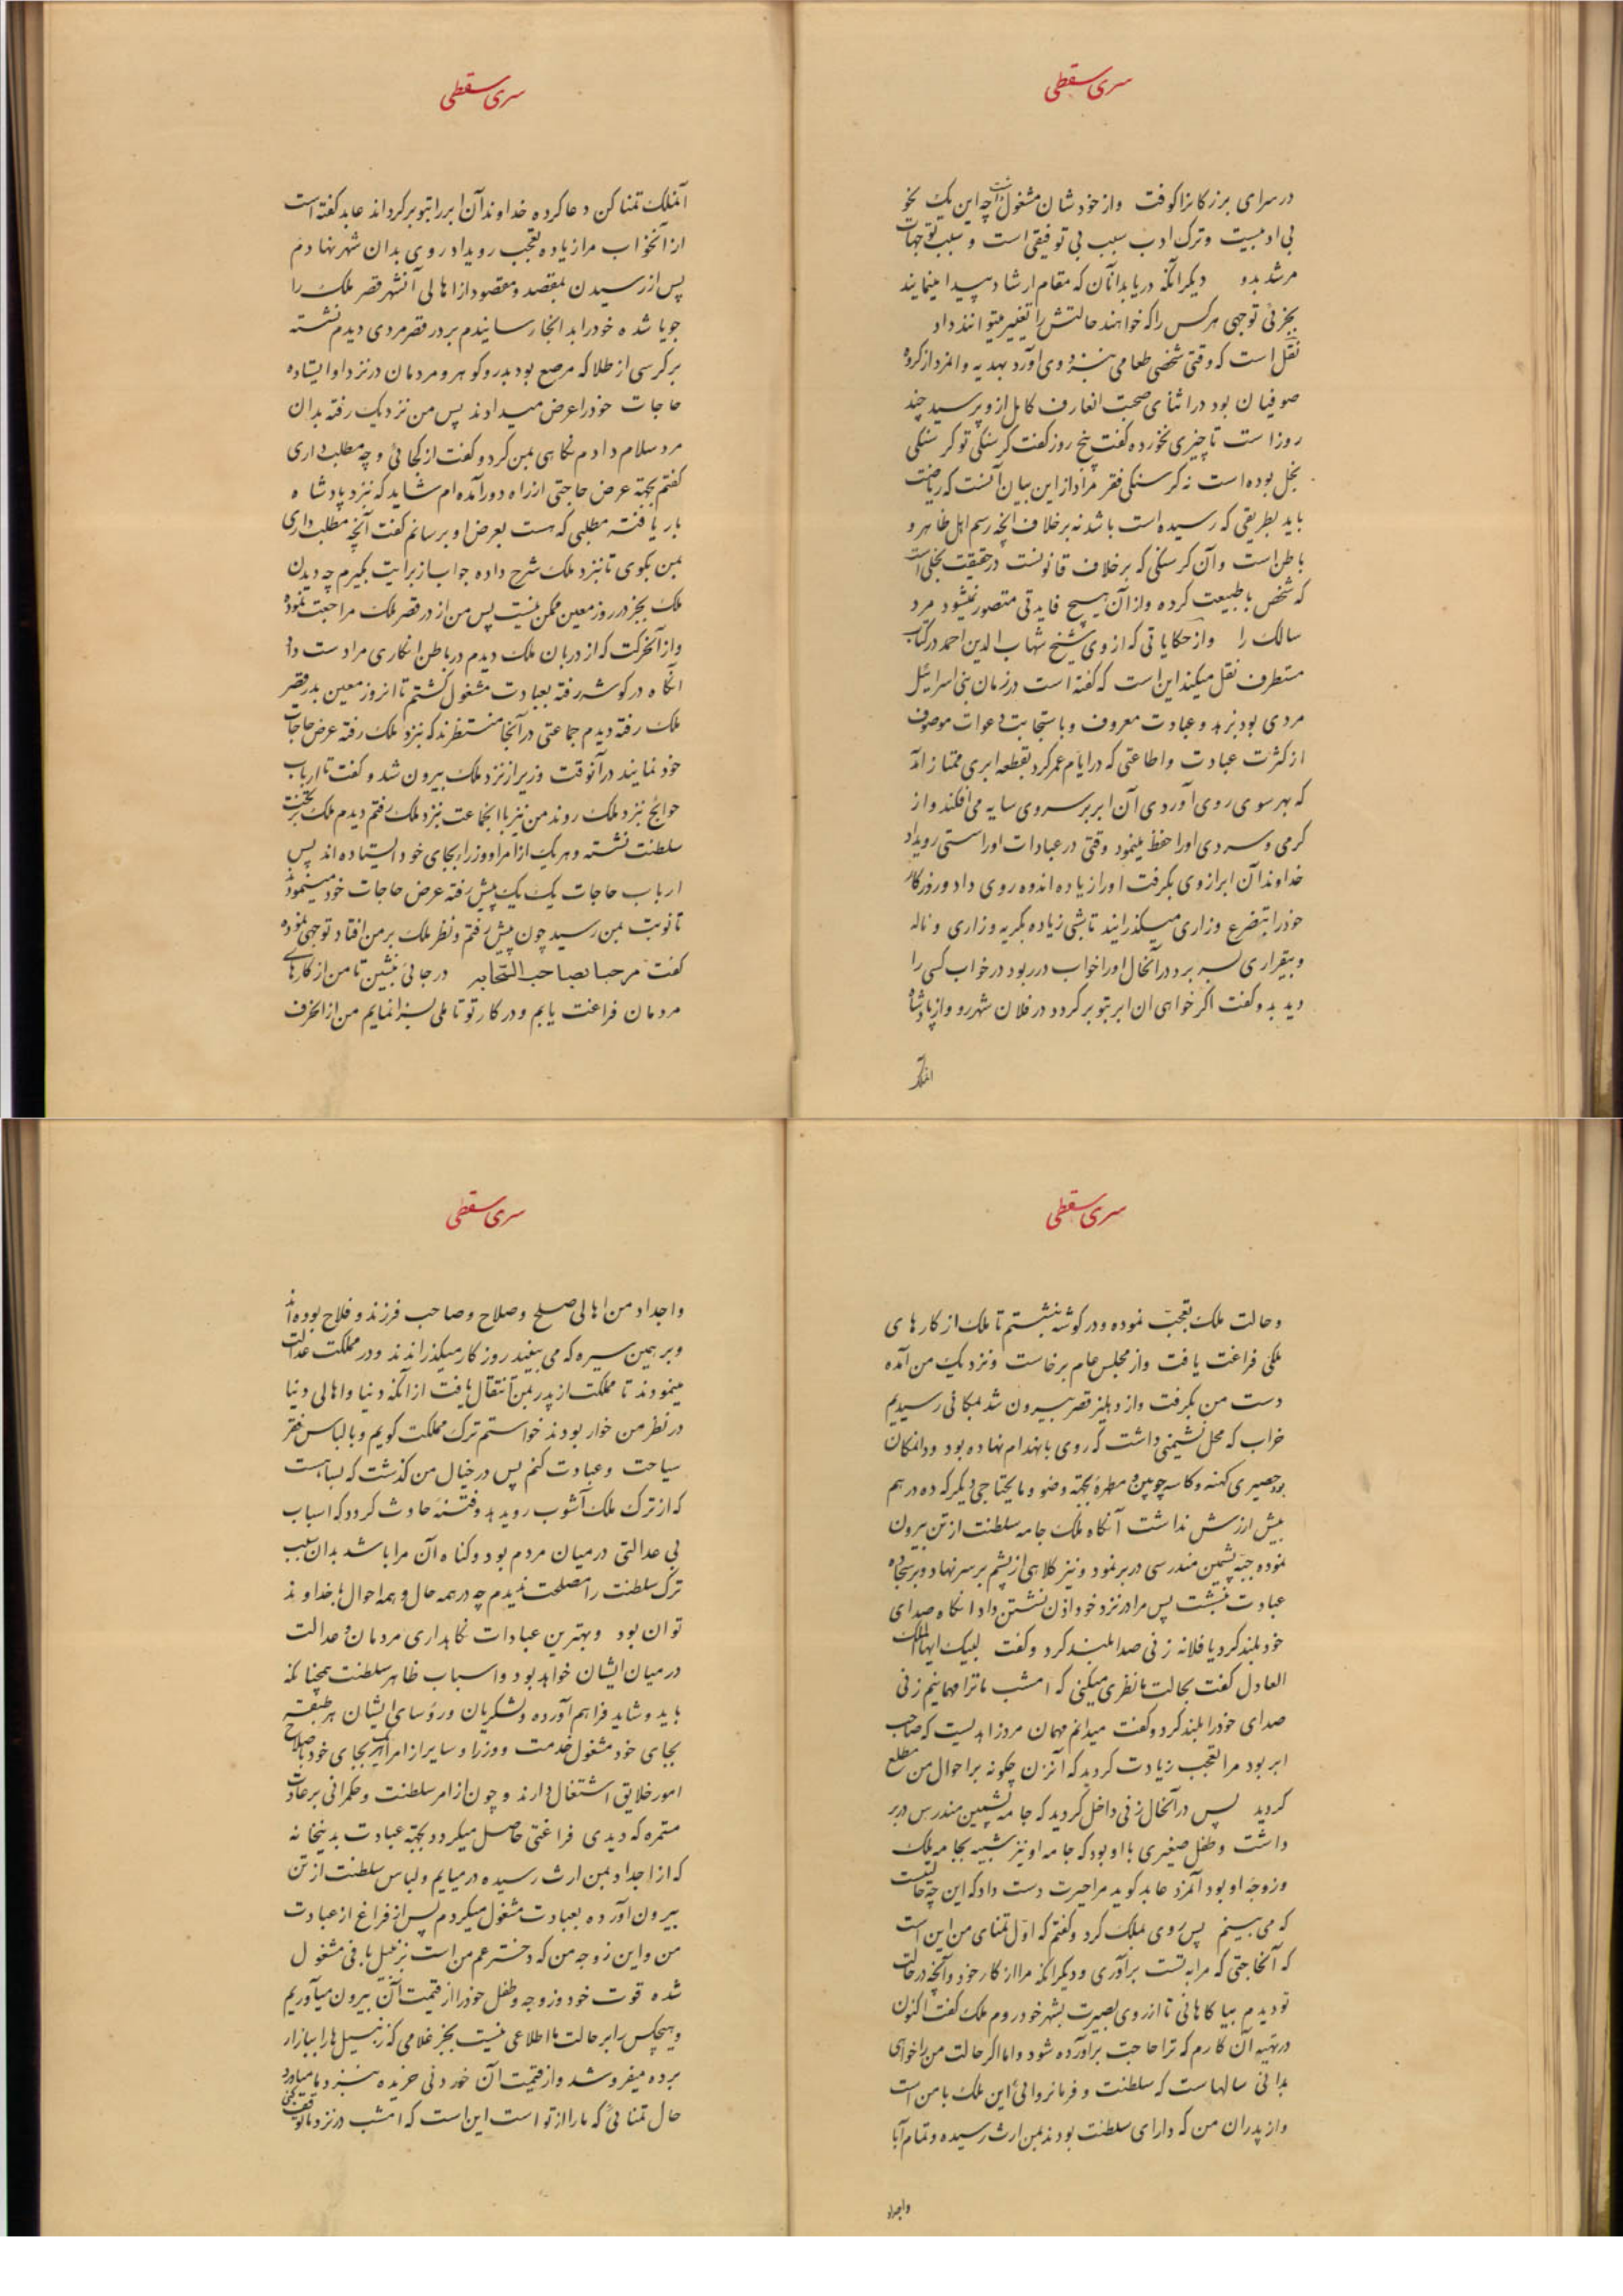 سری سقطی
در سرای بزرگانرا کوفت و از خودشان مشغول داشت چه این یک نحو
بی ادبیست و ترک ادب سبب بی توفیقی است و سبب توجهات
مرشد بدو دیگر آنکه دریابد آنان که مقام ارشاد پیدا مینمایند
بجزئی توجهی هر کس را که خواهند حالتش را تغییر میتوانند داد
نقل است که وقتی شخصی طعامی بنزد وی آورد بهدیه و آنمرد از گروه
صوفیان بود در اثنای صحبت آنعارف کامل از و پرسید چند
روز است تا چیزی نخورده گفت پنج روز گفت گرسنگی تو گرسنگی
بخل بوده است نه گرسنگی فقر مراد از این بیان آنست که ریاضت
باید بطریقی که رسیده است باشد نه برخلاف آنچه رسم اهل ظاهر و
باطن است و آن گرسنگی که برخلاف قانونست در حقیقت بخلی است
که شخص با طبیعت کرده و از آن هیچ فایدتی متصور نمیشود مرد
سالک را و از حکایاتی که از وی شیخ شهاب الدین احمد در کتاب
مستطرف نقل میکند این است که گفته است در زمان بنی اسرائیل
مردی بود بزهد و عبادت معروف و باستجابت دعوات موصوف
از کثرت عبادت و اطاعتی که در ایام عمر کرد بقطعه ابری ممتاز آمد
که بهر سوی روی آوردی آن ابر بر سر وی سایه می افکند و از
گرمی و سردی اورا حفظ مینمود وقتی در عبادات اورا سستی رویداد
خداوند آن ابر از وی بگرفت اورا زیاده اندوه روی داد و روزگار
خودرا بتضرع وزاری میگذرانید تا شبی زیاده بگریه و زاری و ناله
و بیقراری بسر برد در آنحال اورا خواب در ربود در خواب کسی را
دید بدو گفت اگر خواهی آن ابر بتو برگردد در فلان شهر رو و از پادشاه
آنملک
سری سقطی
آنملک تمنا کن دعا کرده خداوند آن ابر را بتو برگرداند عابد گفته است
از آنخواب مرا زیاده تعجب رویداد روی بدان شهر نهادم
پس از رسیدن بمقصد و مقصود از اهالی آنشهر قصر ملک را
جویا شده خودرا بدانجا رسانیدم بر در قصر مردی دیدم نشسته
بر کرسی از طلا که مرصع بود بدر و گوهر و مردمان در نزد او ایستاده
حاجات خودرا عرض میدادند پس من نزدیک رفته بدان
مرد سلام دادم نگاهی بمن کرد و گفت از کجائی و چه مطلب داری
گفتم بجهة عرض حاجتی از راه دور آمده ام شاید که نزد پادشاه
بار یافته مطلبی که هست بعرض او برسانم گفت آنچه مطلب داری
بمن بگوی تا نزد ملک شرح داده جواب از برایت بگیرم چه دیدن
ملک بجز در روز معین ممکن نیست پس من از در قصر ملک مراجعت نموده
و از آنحرکت که از دربان ملک دیدم در باطن انکاری مرا دست داد
آنگاه در گوشه رفته بعبادت مشغول گشتم تا آنروز معین بدر قصر
ملک رفته دیدم جماعتی در آنجا منتظرند که نزد ملک رفته عرض حاجات
خود نمایند در آنوقت وزیر از نزد ملک بیرون شد و گفت تا ارباب
حوائج نزد ملک روند من نیز با آنجماعت نزد ملک رفتم دیدم ملک بر تخت
سلطنت نشسته و هر یک از امرا و وزرا بجای خود ایستاده اند پس
ارباب حاجات یک یک پیش رفته عرض حاجات خود مینمودند
تا نوبت بمن رسید چون پیش رفتم و نظر ملک بر من افتاد توجهی نموده
گفت مرحبا بصاحب السحابه در جائی بنشین تا من از کارهای
مردمان فراغت یابم و در کار تو تاملی بسزا نمایم من از آنحرف
سری سقطی
و حالت ملک تعجب نموده و در گوشه بنشستم تا ملک از کارهای
ملکی فراغت یافت و از مجلس عام برخاست و نزدیک من آمده
دست من بگرفت و از دهلیز قصر بیرون شد بمکانی رسیدیم
خراب که محل نشیمنی داشت که روی بانهدام نهاده بود و در آنمکان
بود حصیری کهنه و کاسه چوبین و مطهره بجهة وضو و مایحتاجی دیگر که ده درهم
بیش ارزش نداشت آنگاه ملک جامه سلطنت از تن بیرون
نموده جبه پشمین مندرسی در بر نمود و نیز کلاهی از پشم بر سر نهاد و بر سجاده
عبادت بنشست پس مرا در نزد خود اذن نشستن داد آنگاه صدای
خود بلند کرد یا فلانه زنی صدا بلند کرد و گفت لبیک ایها الملک
العادل گفت بحالت ما نظری میکنی که امشب ما ترا مهمانیم زنی
صدای خودرا بلند کرد و گفت میدانم مهمان مرد زاهدیست که صاحب
ابر بود مرا تعجب زیادت گردید که آنزن چگونه بر احوال من مطلع
گردید پس در آنحال زنی داخل گردید که جامه پشمین مندرس در بر
داشت و طفل صغیری با او بود که جامه او نیز شبیه بجامه ملک
و زوجه او بود آنمرد عابد گوید مرا حیرت دست داد که این چه حالتیست
که می بینم پس روی بملک کرد و گفتم که اول تمنای من این است
که آنحاجتی که مرا به تست برآوری و دیگر آنکه مرا از کار خود و آنچه در حالت
تو دیدم بیاگاهانی تا از روی بصیرت بشهر خود روم ملک گفت اکنون
در تهیه آن کارم که ترا حاجت برآورده شود و اما اگر حالت من را خواهی
بدانی سالهاست که سلطنت و فرمانروائی این ملک با من است
و از پدران من که دارای سلطنت بودند بمن ارث رسیده و تمام آبا
واجداد
سری سقطی
واجداد من اهالی صلح و صلاح و صاحب فرزند و فلاح بوده اند
و بر همین سیره که می بینید روزگار میگذرانیدند و در مملکت عدالت
مینمودند تا مملکت از پدر بمن انتقال یافت از آنکه دنیا و اهالی دنیا
در نظر من خوار بودند خواستم ترک مملکت گویم و بالباس فقر
سیاحت و عبادت کنم پس در خیال من گذشت که بسا هست
که از ترک ملک آشوب روید بد و فتنه حادث گردد که اسباب
بی عدالتی در میان مردم بود و گناه آن مرا باشد بدان سبب
ترک سلطنت را مصلحت ندیدم چه در همه حال و همه احوال با خداوند
توان بود و بهترین عبادات نگاهداری مردمان و عدالت
در میان ایشان خواهد بود و اسباب ظاهر سلطنت همچنانکه
باید و شاید فراهم آورده و لشکریان و رؤسای ایشان هر طبقه
بجای خود مشغول خدمت و وزرا و سایر از امرا هر یک بجای خود باصلاح
امور خلایق اشتغال دارند و چون از امر سلطنت و حکمرانی بر عادت
مستمره که دیدی فراغتی حاصل میگردد بجهة عبادت بدینخانه
که از اجداد بمن ارث رسیده در میایم و لباس سلطنت از تن
بیرون آورده بعبادت مشغول میگردم پس از فراغ از عبادت
من و این زوجه من که دختر عم من است بزنبیل بافی مشغول
شده قوت خود و زوجه و طفل خودرا از قیمت آن بیرون میآوریم
و هیچکس را بر حالت ما اطلاعی نیست بجز غلامی که زنبیل ها را ببازار
برده میفروشد و از قیمت آن خوردنی خریده بنزد ما میاورد
حال تمنائی که مارا از تو است این است که امشب در نزد ما توقف کنی